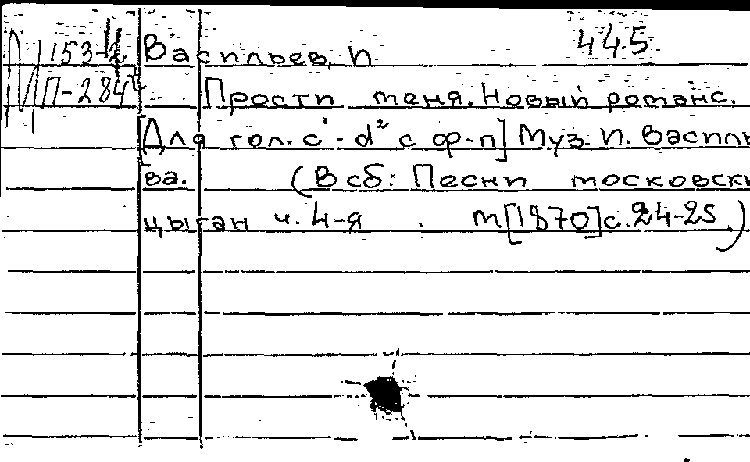 445
М 153/4 Васильев, И
П-284 Прости меня. Новый романс.
[Для гол. c¹-d² с ф-п] Муз. И. Василь
ева. (В сб: Песни московски
цыган ч. 4-я. М[1870]с.24-25.)